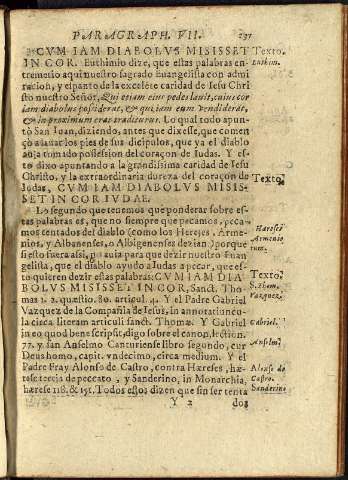 PARAGRAPH. VII. 171
CVM IAM DIABOLVS MISISSET Texto.
IN COR. Euthimio dize, que estas palabras en- Euthim.
tremetio aqui nuestro sagrado Euangelista con admi
racion, y espanto de la excelēte caridad de Iesu Chri
sto nuestro Señor, Qui etiam eius pedes lauit, cuius cor
iam diabolus possiderat, & qui iam eum vendiderat,
& in proximum erat traditurus. Lo qual todo apun-
tò San Iuan, diziendo, antes que dixesse, que comen
çò a lauar los pies de sus dicipulos, que ya el diablo
auia tomado possession del coraçon de Iudas. Y es-
to dixo apuntando a la grandissima caridad de Iesu
Christo, y la extraordinaria dureza del coraçon de
Iudas, CVM IAM DIABOLVS MISIS- Texto.
SET IN COR IVDAE.
Lo segundo que tenemos que ponderar sobre es-
tas palabras es, que no siempre que pecamos, peca-
mos tentados del diablo (como los Herejes, Arme- Hæreses
nios, y Albanenses, o Albigenenses dezian) porque Armenio
si esto fuera assi, no auia para que dezir nuestro Euan rum.
gelista, que el diablo ayudo a Iudas a pecar, que es-
to quieren dezir estas palabras: CVM IAM DIA- Texto.
BOLVS MISISSET IN COR, Sanct. Tho S. Thom.
mas 1. 2. quæstio. 80. articul. 4. Y el Padre Gabriel Vazquez.
Vazquez de la Compañia de Iesus, in annotatiuncu-
la circa literam articuli sanct. Thomæ. Y Gabriel Gabriel.
in eo quod bene scripsit, digo sobre el canon, lection.
77. y san Anselmo Canturiense libro segundo, cur Anselm.
Deus homo, capit. vndecimo, circa medium. Y el
Padre Fray Alonso de Castro, contra Hæreses, hæ- Alonso de
rese tercia de peccato, y Sanderino, in Monarchia, Castro.
hærese 118. & 151. Todos estos dizen que sin ser tenta Sanderino
Y 2 dos